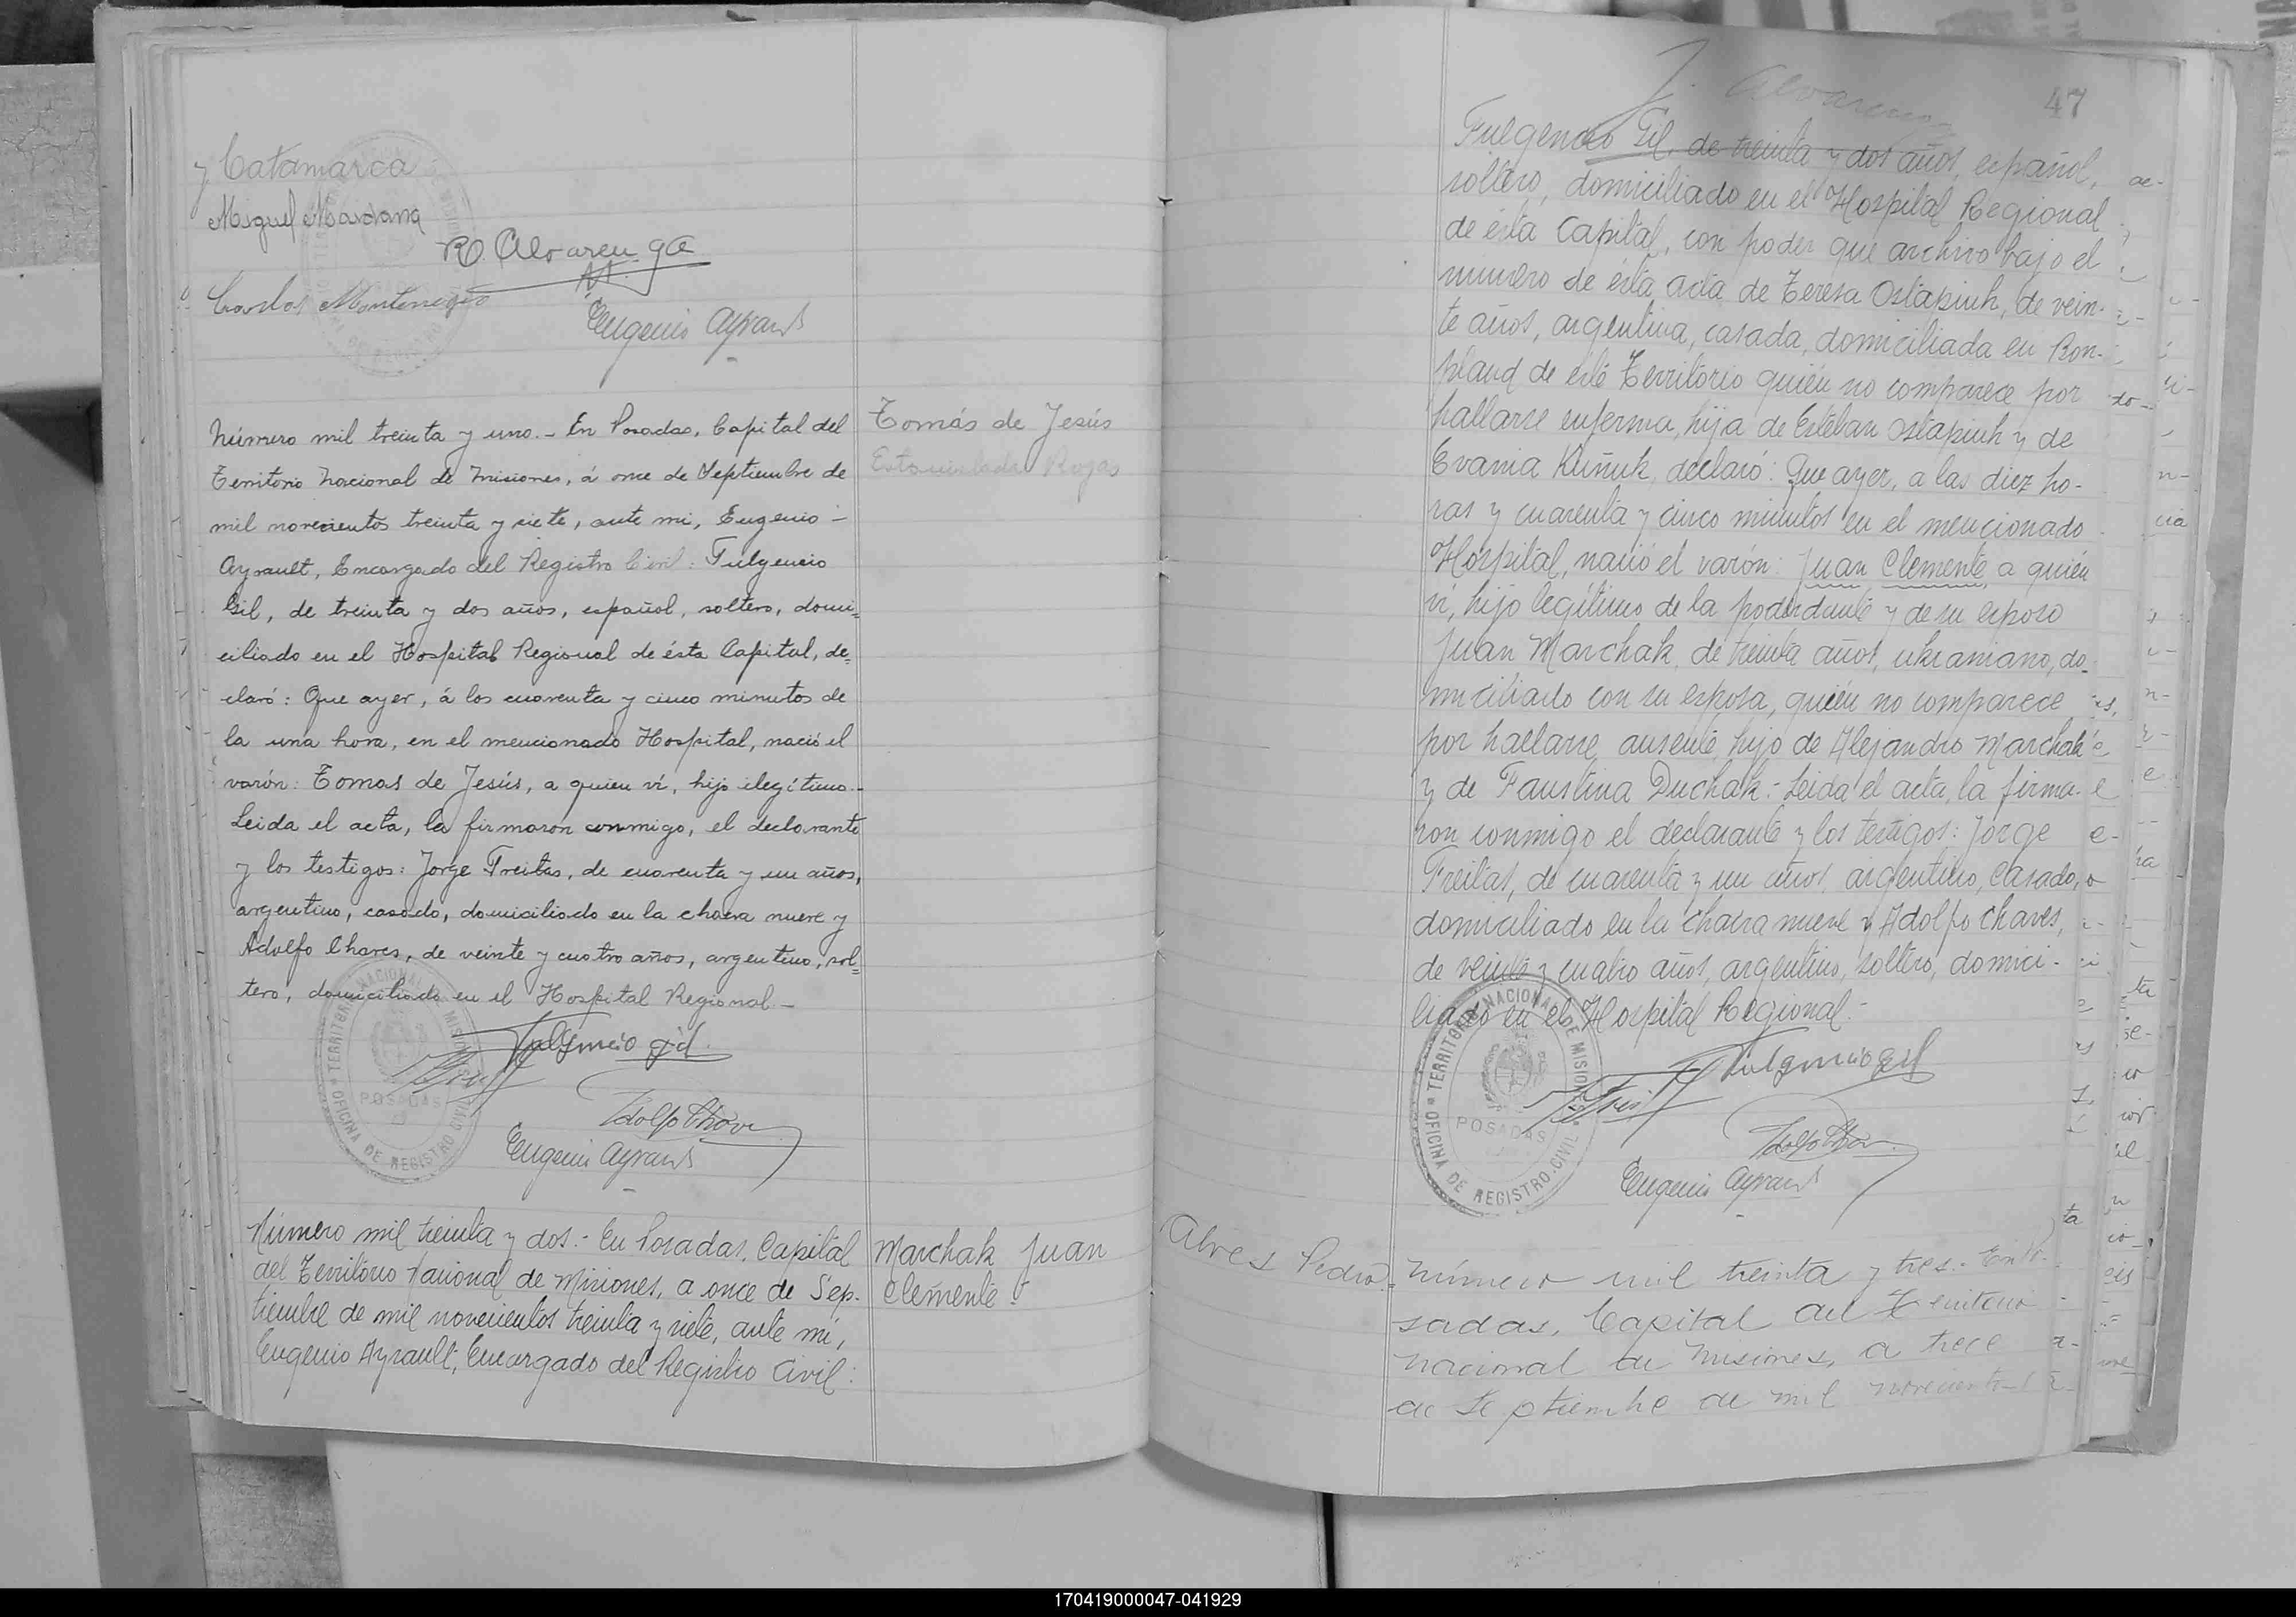 y Catamarca
Miguel Maidana
R. Alvarenga
Carlos Montenegro
Eugenio Ayrault
Número mil treinta y uno.- En Posadas, Capital del
Territorio Nacional de Misiones, á once de Septiembre de
mil novecientos treinta y siete, ante mi, Eugenio -
Ayrault, Encargado del Registro Civil: Fulgencio
Gil, de treinta y dos años, español, soltero, domi=
ciliado en el Hospital Regional de ésta Capital, de=
claró: Que ayer, á los cuarenta y cinco minutos de
la una hora, en el mencionado Hospital, nació el
varón: Tomas de Jesús, a quien ví, hijo ilegítimo.-
Leida el acta, la firmaron conmigo, el declarante
y los testigos: Jorge Freitas, de cuarenta y un años,
argentino, casado, domiciliado en la chacra nueve y
Adolfo Chaves, de veinte y cuatro años, argentino, sol=
tero, domiciliado en el Hospital Regional.-
Tomás de Jesús
Rojas
Fulgencio Gil
Adolfo Chaves
Eugenio Ayrault
TERRITORIO NACIONAL DE MISIONES
POSADAS
OFICINA DE REGISTRO CIVIL
Número mil treinta y dos.- En Posadas, Capital
del Territorio Nacional de Misiones, a once de Sep-
tiembre de mil novecientos treinta y siete, ante mí,
Eugenio Ayrault, Encargado del Registro Civil:
Marchak Juan
Clemente.-
J. Alvarenga
47
Fulgencio Gil, de treinta y dos años, español,
soltero, domiciliado en el Hospital Regional
de ésta Capital, con poder que archivo bajo el
número de ésta acta de Teresa Ostapiuk, de vein-
te años, argentina, casada, domiciliada en Bon-
pland de éste Territorio quién no comparece por
hallarse enferma, hija de Esteban Ostapiuk y de
Evania Kuñuk, declaró: Que ayer, a las diez ho-
ras y cuarenta y cinco minutos en el mencionado
Hospital, nació el varón: Juan Clemente, a quién
ví, hijo legítimo de la poderdante y de su esposo
Juan Marchak, de treinta años, ukraniano, do-
miciliado con su esposa, quién no comparece
por hallarse ausente, hijo de Alejandro Marchak
y de Faustina Duchak.- Leida el acta, la firma-
ron conmigo el declarante y los testigos: Jorge
Freitas, de cuarenta y un años, argentino, casado,
domiciliado en la chacra nueve y Adolfo Chaves,
de veinte y cuatro años, argentino, soltero, domici-
liado en el Hospital Regional.-
Fulgencio Gil
Adolfo Chaves
Eugenio Ayrault
TERRITORIO NACIONAL DE MISIONES
POSADAS
OFICINA DE REGISTRO CIVIL
Alves Pedro.-
Número mil treinta y tres.- En Po-
sadas, Capital del Territorio
Nacional de Misiones, a trece
de Septiembre de mil novecientos
170419000047-041929